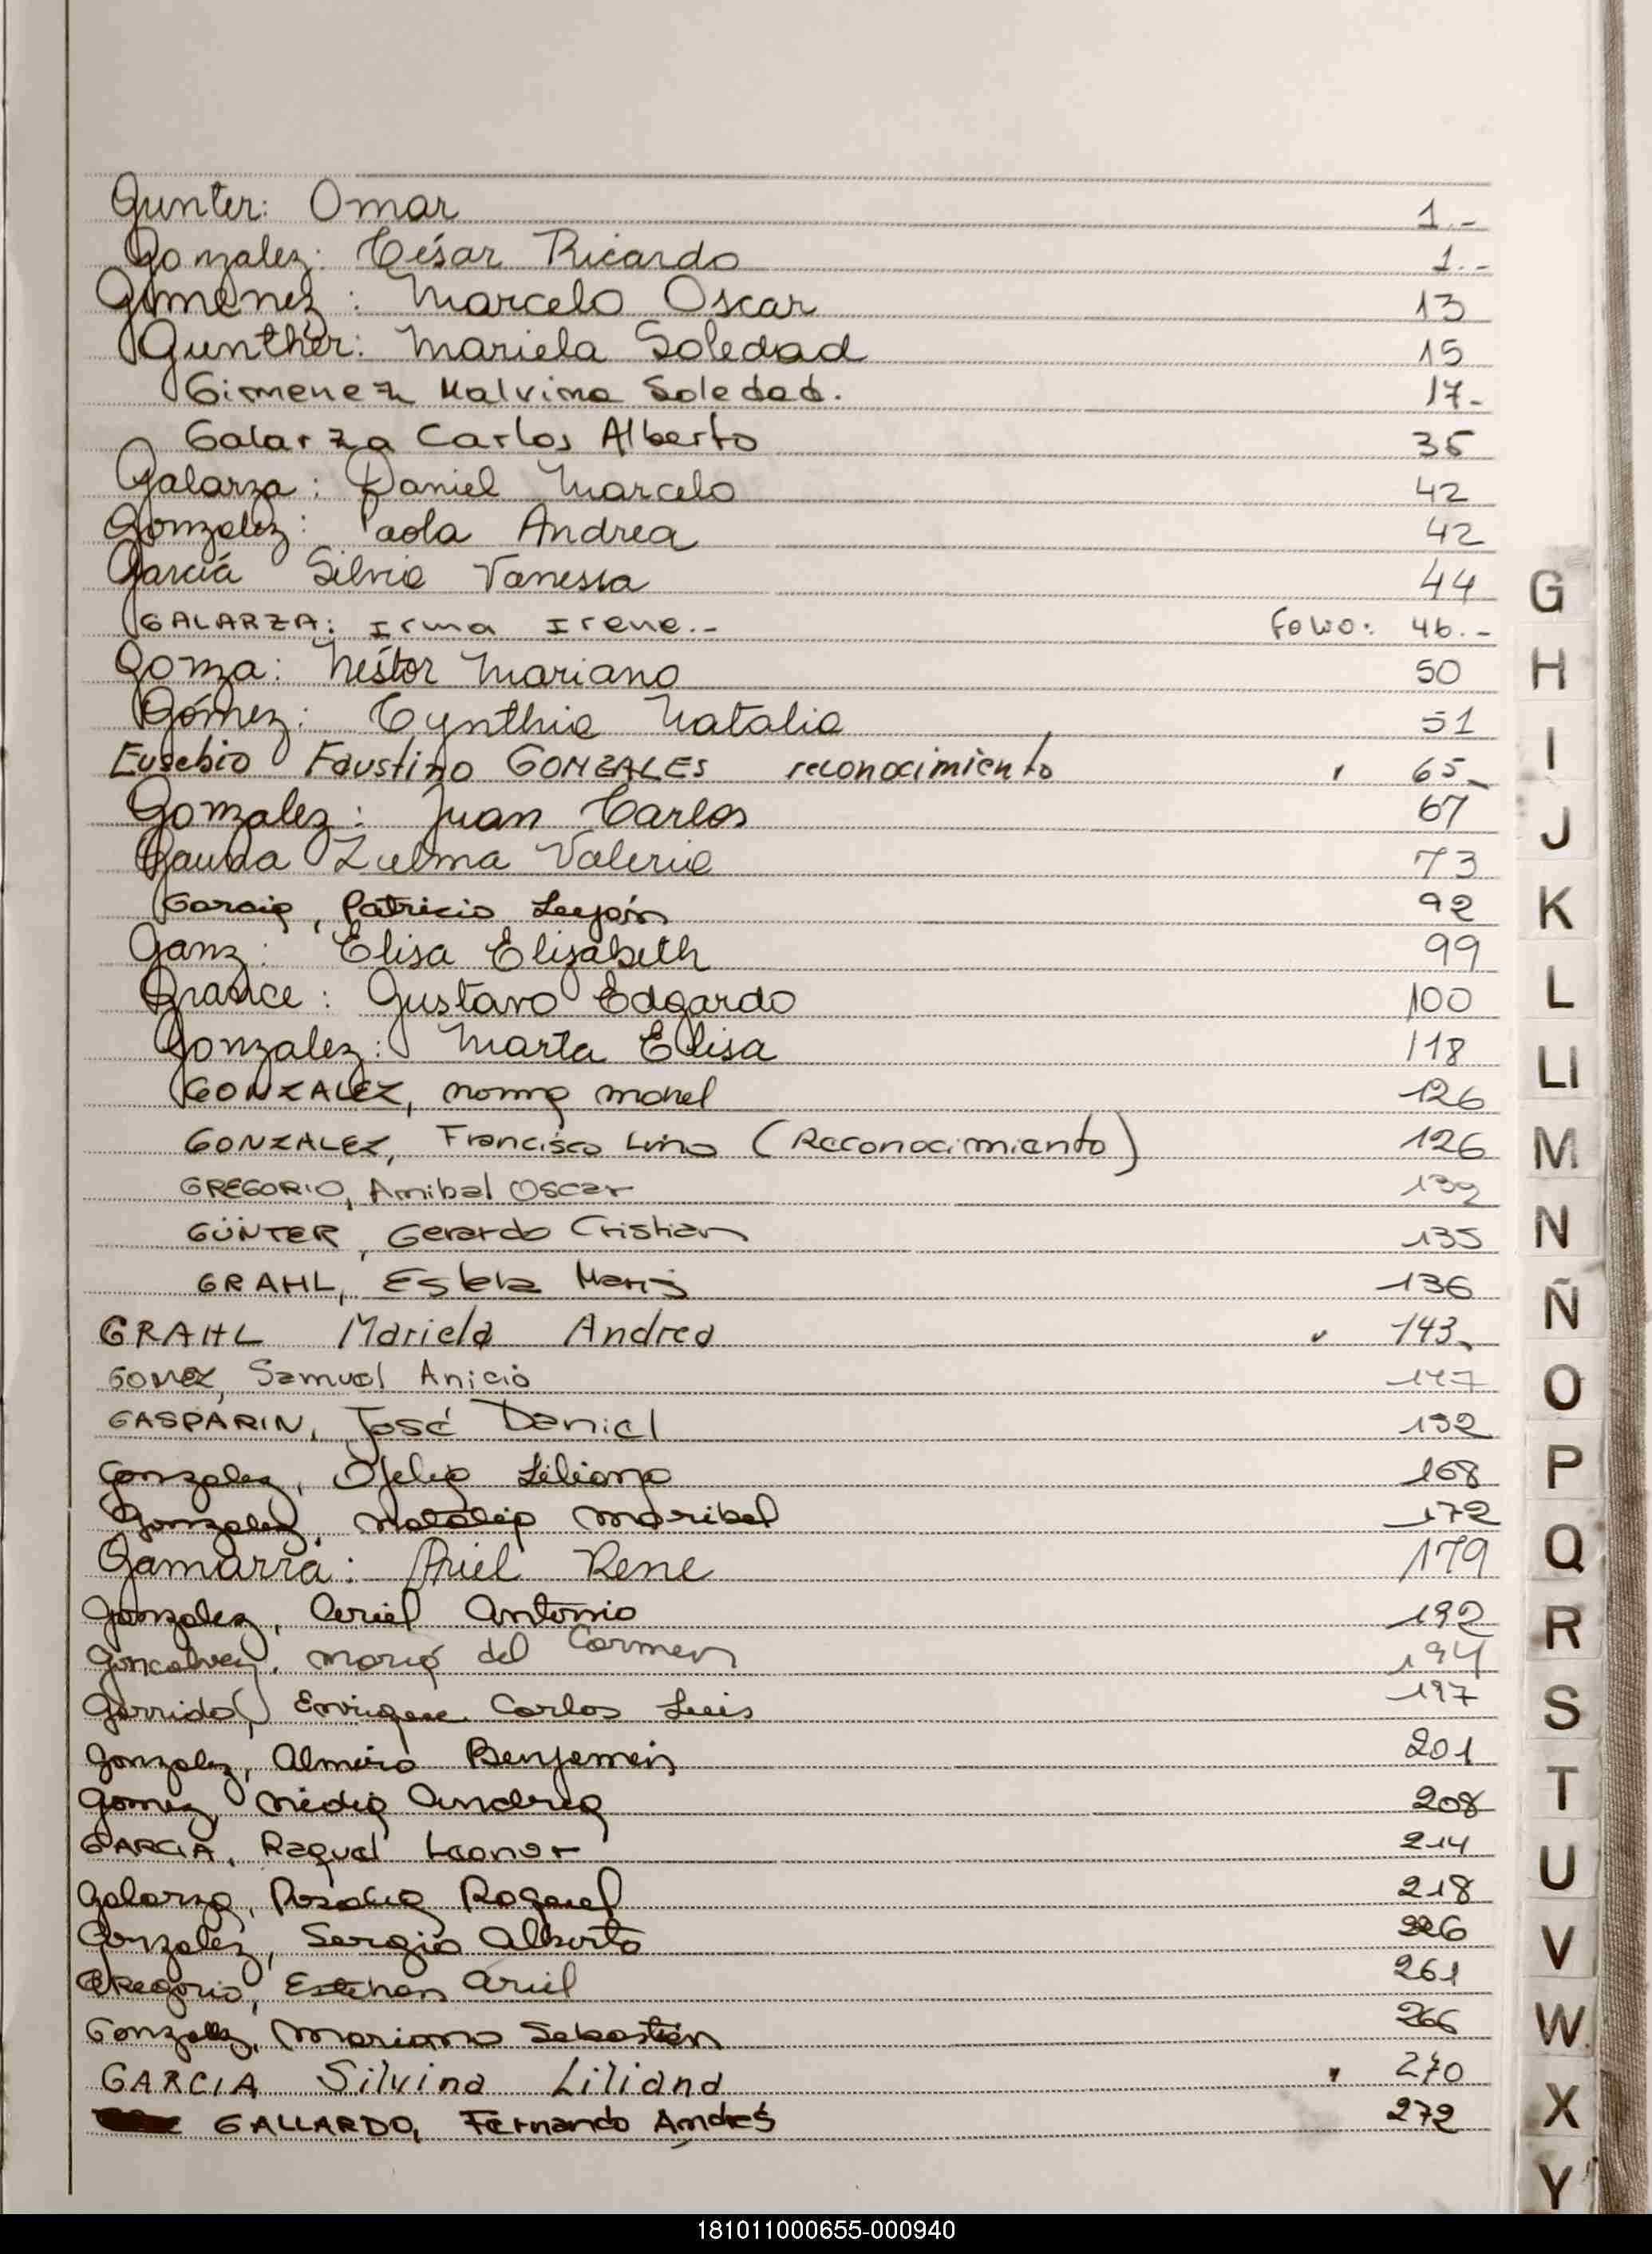 Gunter: Omar 1.-
Gonzalez: César Ricardo 1.-
Gimenez: Marcelo Oscar 13
Gunther: Mariela Soledad 15
Gimenez Malvina Soledad. 17-
Galarza Carlos Alberto 35
Galarza: Daniel Marcelo 42
Gonzalez: Paola Andrea 42
García Silvia Vanessa 44
GALARZA: Irma Irene.- Folio: 46.-
Gonza: Néstor Mariano 50
Gómez: Cynthia Natalia 51
Eusebio Faustino GONZALES reconocimiento 65-
Gonzalez: Juan Carlos 67
Gauna Zulma Valeria 73
Garcia, Patricia Luján 92
Ganz: Elisa Elizabeth 99
Grance: Gustavo Edgardo 100
Gonzalez: Marta Elisa 118
GONZALEZ, norma mabel 126
GONZALEZ, Francisco Lino (Reconocimiento) 126
GREGORIO, Anibal Oscar
GÜNTER, Gerardo Cristian 135
GRAHL, Estela Maris 136
GRAHL Mariela Andrea 143
GOMEZ, Samuel Anicio 147
GASPARIN, José Daniel 152
Gonzalez, Ofelia Liliana 168
Gonzalez, Natalia Maribel 172
Gamarra: Ariel Rene 179
Gonzalez, Ariel Antonio 192
Goncalvez, María del Carmen 194
Garrido, Enrique Carlos Luis 197
Gonzalez, Almiro Benjamin 201
Gomez, Nidia Andrea 208
GARCIA, Raquel Leonor 214
Galarza, Rosalia Raquel 218
Gonzalez, Sergio Alberto 226
GREGORIO, Esteban Ariel 261
Gonzalez, Mariano Sebastián 266
GARCIA Silvina Liliana 270
GALLARDO, Fernando Andrés 272
G
H
I
J
K
L
Ll
M
N
Ñ
O
P
Q
R
S
T
U
V
W
X
Y
181011000655-000940